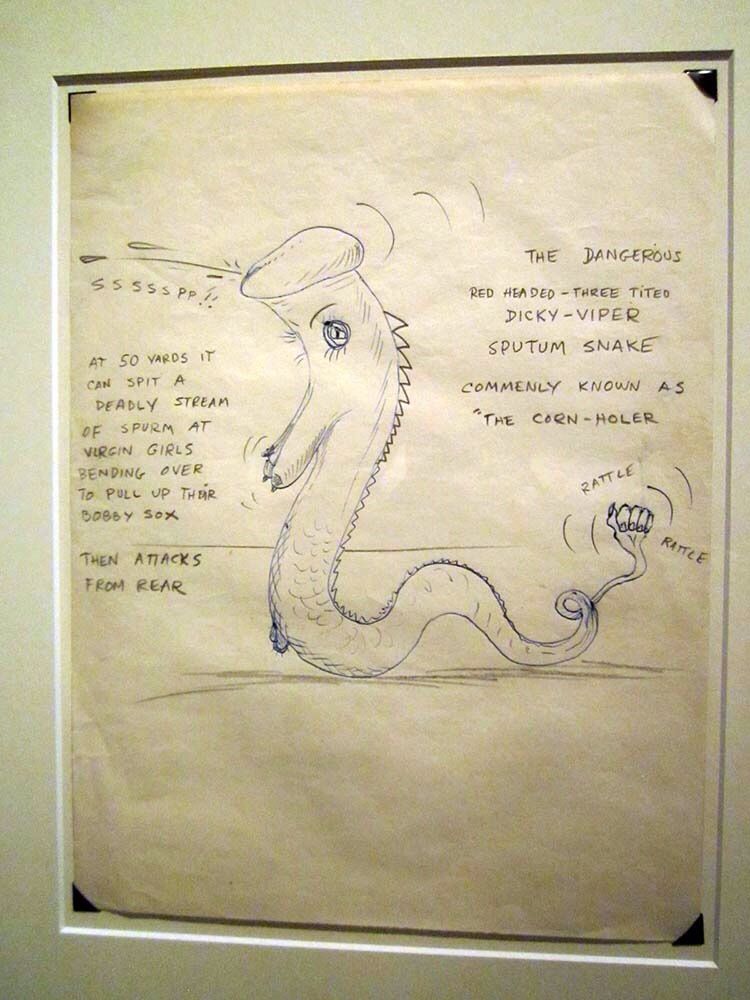 THE DANGEROUS
RED HEADED - THREE TITED
DICKY - VIPER
SPUTUM SNAKE
COMMENLY KNOWN AS
"THE CORN - HOLER
SSSSSPP!!
AT 50 YARDS IT
CAN SPIT A
DEADLY STREAM
OF SPURM AT
VIRGIN GIRLS
BENDING OVER
TO PULL UP THEIR
BOBBY SOX
THEN ATTACKS
FROM REAR
RATTLE
RATTLE